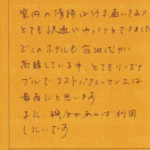 室内の清掃は行き届いており
とても快適にゆっくりとできました
どこのホテルも宿泊代が
高騰している中、とてもリーズナ
ブルで、コストパフォーマンスは
最高だと思います
また、機会があれば利用
したいです